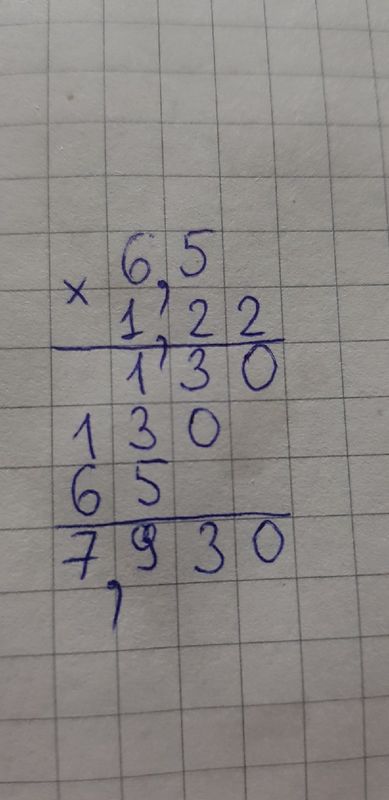 6,5
× 1,22
130
130
65
7,930